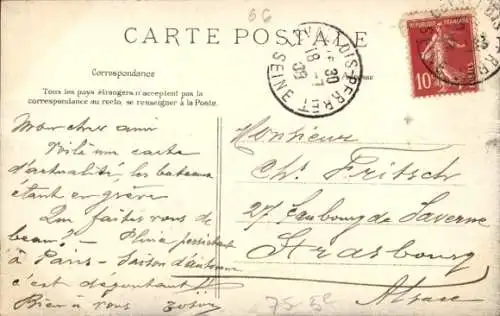 66
CARTE POSTALE
Correspondance
Tous les pays étrangers n'acceptent pas la
correspondance au recto, se renseigner à la Poste.
LEVALLOIS-PERRET
SEINE
18 -7
09
RÉPUBLIQUE FRANÇAISE
10
Mon cher ami
Voilà une carte
d'actualité, les bateaux
étant en grève
Que faites vous de
beau? - Pluie persistante
à Paris - Saison d'automne
c'est dégoutant!
Bien à vous
Monsieur
Ch. Fritsch
27 Faubourg de Saverne
Strasbourg
Alsace
75